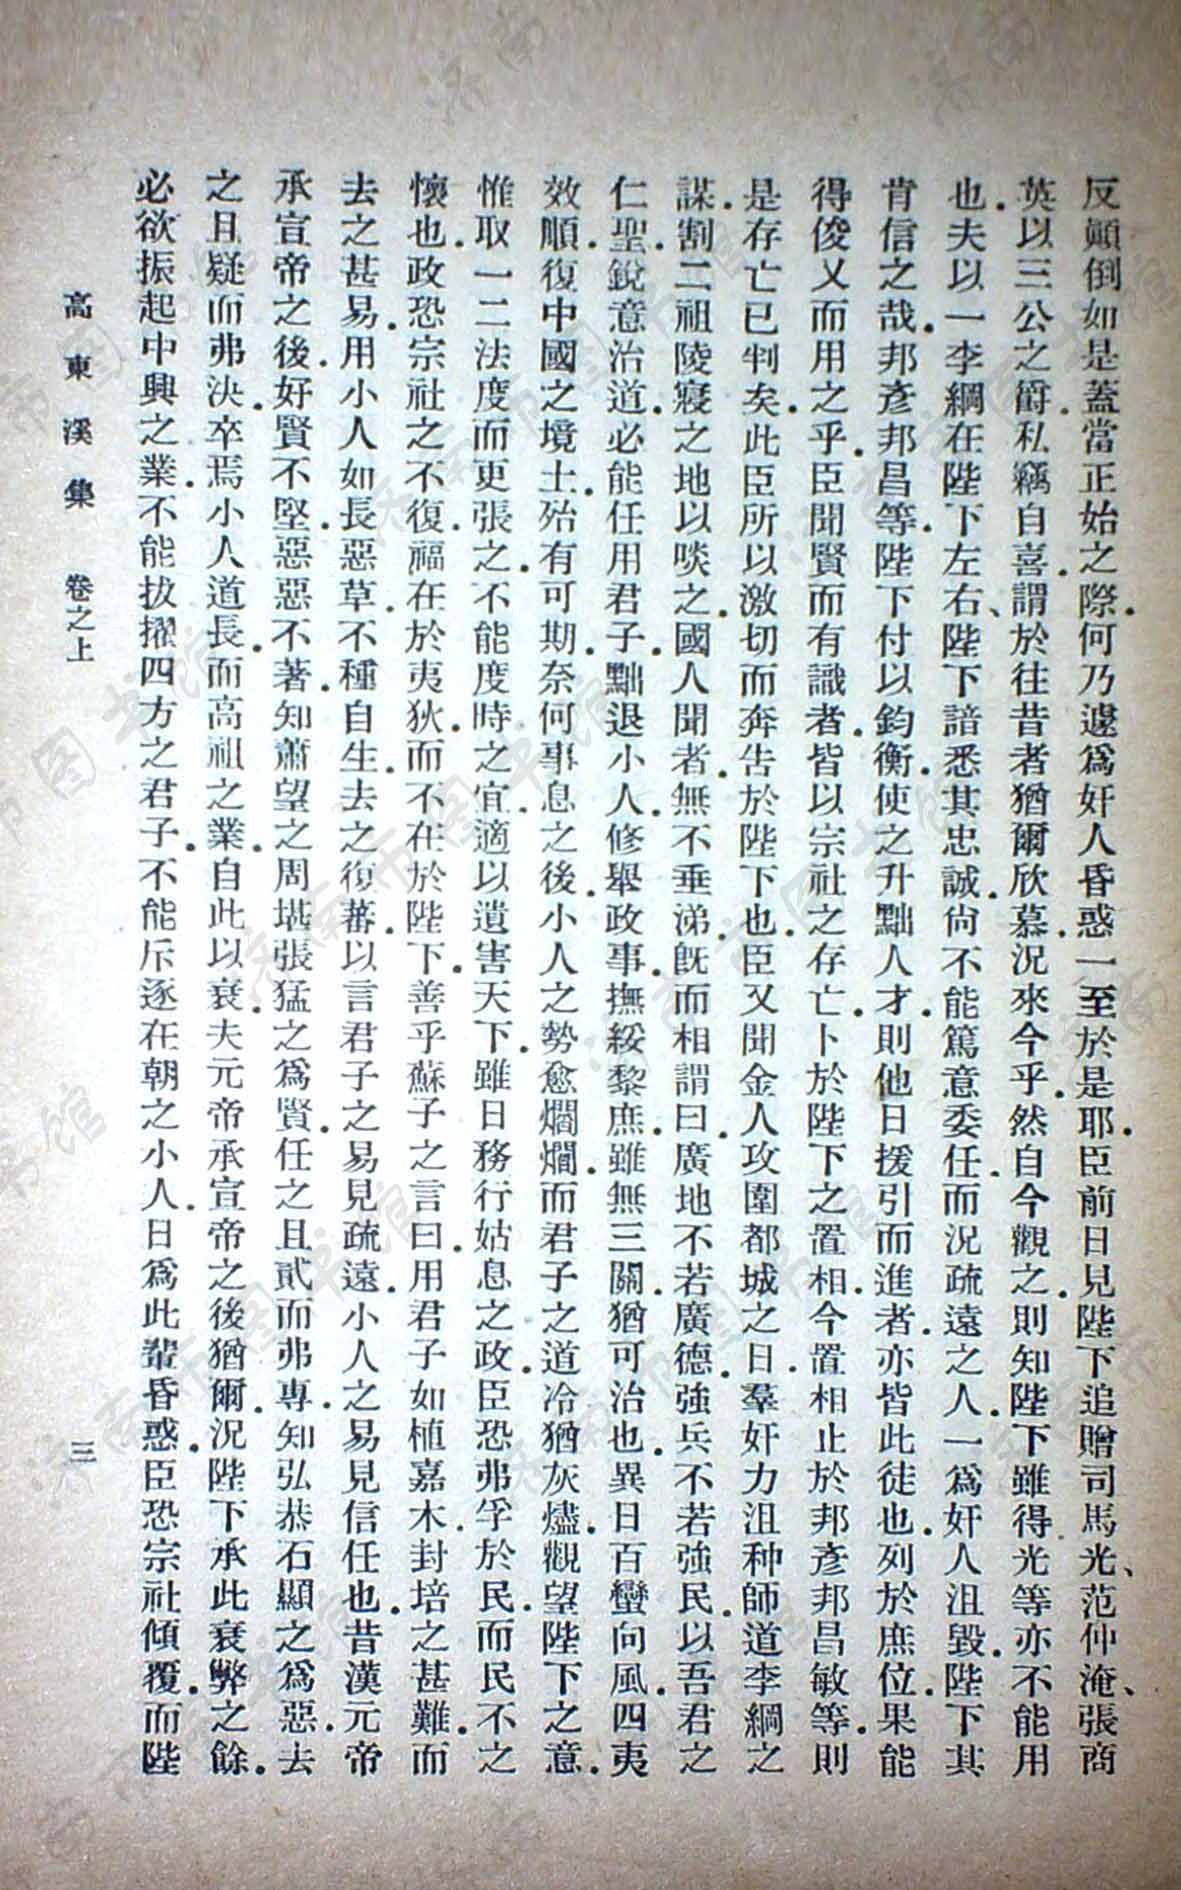 反顚倒如是蓋當正始之際.何乃遽爲奸人昏惑一至於是耶.臣前日見陛下追贈司馬光、范仲淹、張商
英以三公之爵.私竊自喜.謂於往昔者猶爾欣慕.況來今乎.然自今觀之.則知陛下雖得光等.亦不能用
也.夫以一李綱在陛下左右、陛下諳悉其忠誠.尙不能篤意委任.而況疏遠之人.一爲奸人沮毀.陛下其
肯信之哉.邦彥邦昌等.陛下付以鈞衡.使之升黜人才.則他日援引而進者.亦皆此徒也.列於庶位.果能
得俊乂而用之乎.臣聞賢而有識者.皆以宗社之存亡.卜於陛下之置相.今置相止於邦彥邦昌敏等.則
是存亡已判矣.此臣所以激切而奔告於陛下也.臣又聞金人攻圍都城之日.羣奸力沮种師道李綱之
謀.割二祖陵寢之地以啖之.國人聞者.無不垂涕.旣而相謂曰.廣地不若廣德.強兵不若強民.以吾君之
仁聖.銳意治道.必能任用君子.黜退小人.修舉政事.撫綏黎庶.雖無三關.猶可治也.異日百蠻向風.四夷
效順.復中國之境土.殆有可期.奈何事息之後.小人之勢愈爓爓.而君子之道冷猶灰燼.觀望陛下之意.
惟取一二法度而更張之.不能度時之宜.適以遺害天下.雖日務行姑息之政.臣恐弗孚於民.而民不之
懷也.政恐宗社之不復.福在於夷狄.而不在於陛下.善乎蘇子之言曰.用君子如植嘉木.封培之甚難.而
去之甚易.用小人如長惡草.不種自生.去之復蕃.以言君子之易見疏遠.小人之易見信任也.昔漢元帝
承宣帝之後.好賢不堅.惡惡不著.知蕭望之周堪張猛之爲賢.任之且貳而弗專.知弘恭石顯之爲惡.去
之且疑而弗決.卒焉小人道長.而高祖之業.自此以衰.夫元帝承宣帝之後猶爾.況陛下承此衰弊之餘.
必欲振起中興之業.不能拔擢四方之君子.不能斥逐在朝之小人.日爲此輩昏惑.臣恐宗社傾覆.而陛
高東溪集 卷之上 三
济南市图书馆